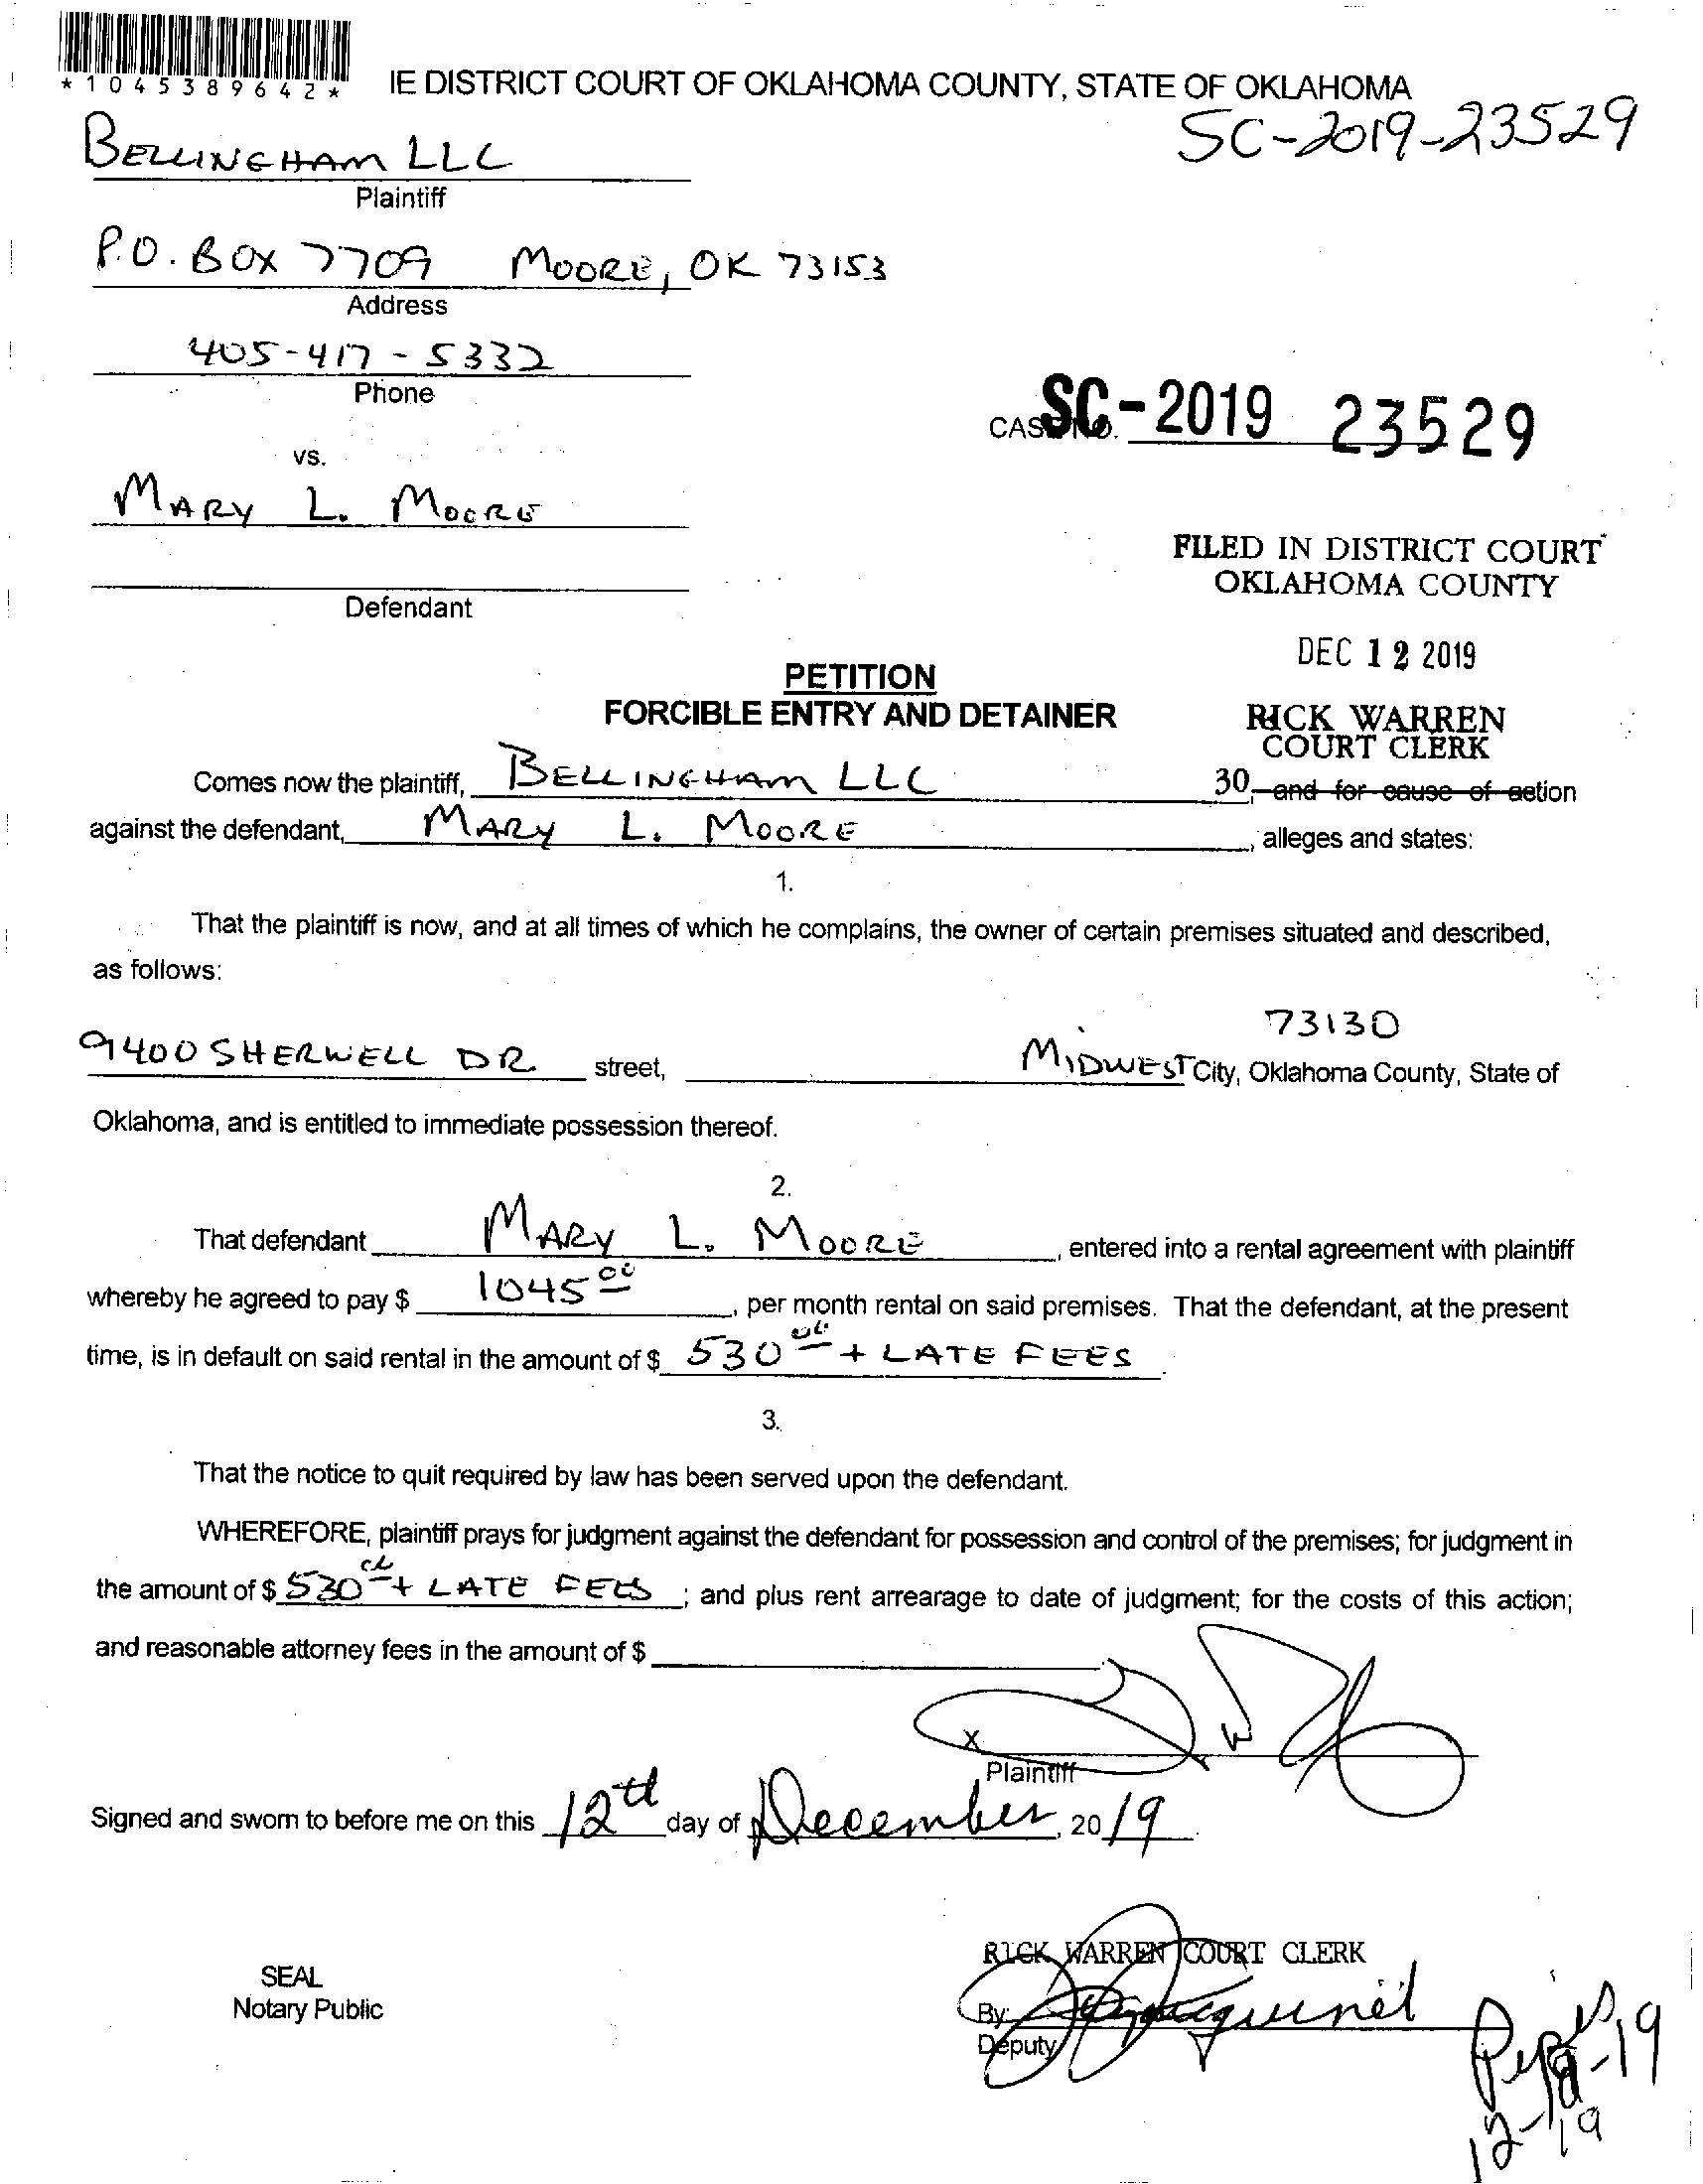 *1045389642*
IE DISTRICT COURT OF OKLAHOMA COUNTY, STATE OF OKLAHOMA
SC-2019-23529
BELLINGHAM LLC
Plaintiff
P.O. BOX 7709 MOORE, OK 73153
Address
405-417-5332
Phone
CASE NO. SC-2019 23529
vs.
MARY L. MOORE
FILED IN DISTRICT COURT
OKLAHOMA COUNTY
Defendant
DEC 12 2019
PETITION
FORCIBLE ENTRY AND DETAINER
RICK WARREN
COURT CLERK
Comes now the plaintiff, BELLINGHAM LLC 30, and for cause of action
against the defendant, MARY L. MOORE, alleges and states:
1.
That the plaintiff is now, and at all times of which he complains, the owner of certain premises situated and described,
as follows:
73130
9400 SHERWELL DR. street, MIDWEST City, Oklahoma County, State of
Oklahoma, and is entitled to immediate possession thereof.
2.
That defendant MARY L. MOORE, entered into a rental agreement with plaintiff
whereby he agreed to pay $ 1045 00, per month rental on said premises. That the defendant, at the present
time, is in default on said rental in the amount of $ 530 00 + LATE FEES.
3.
That the notice to quit required by law has been served upon the defendant.
WHEREFORE, plaintiff prays for judgment against the defendant for possession and control of the premises; for judgment in
the amount of $ 530 00 + LATE FEES; and plus rent arrearage to date of judgment; for the costs of this action;
and reasonable attorney fees in the amount of $
X
Plaintiff
Signed and sworn to before me on this 12th day of December, 2019.
RICK WARREN COURT CLERK
SEAL
Notary Public
By:
Deputy
12-19